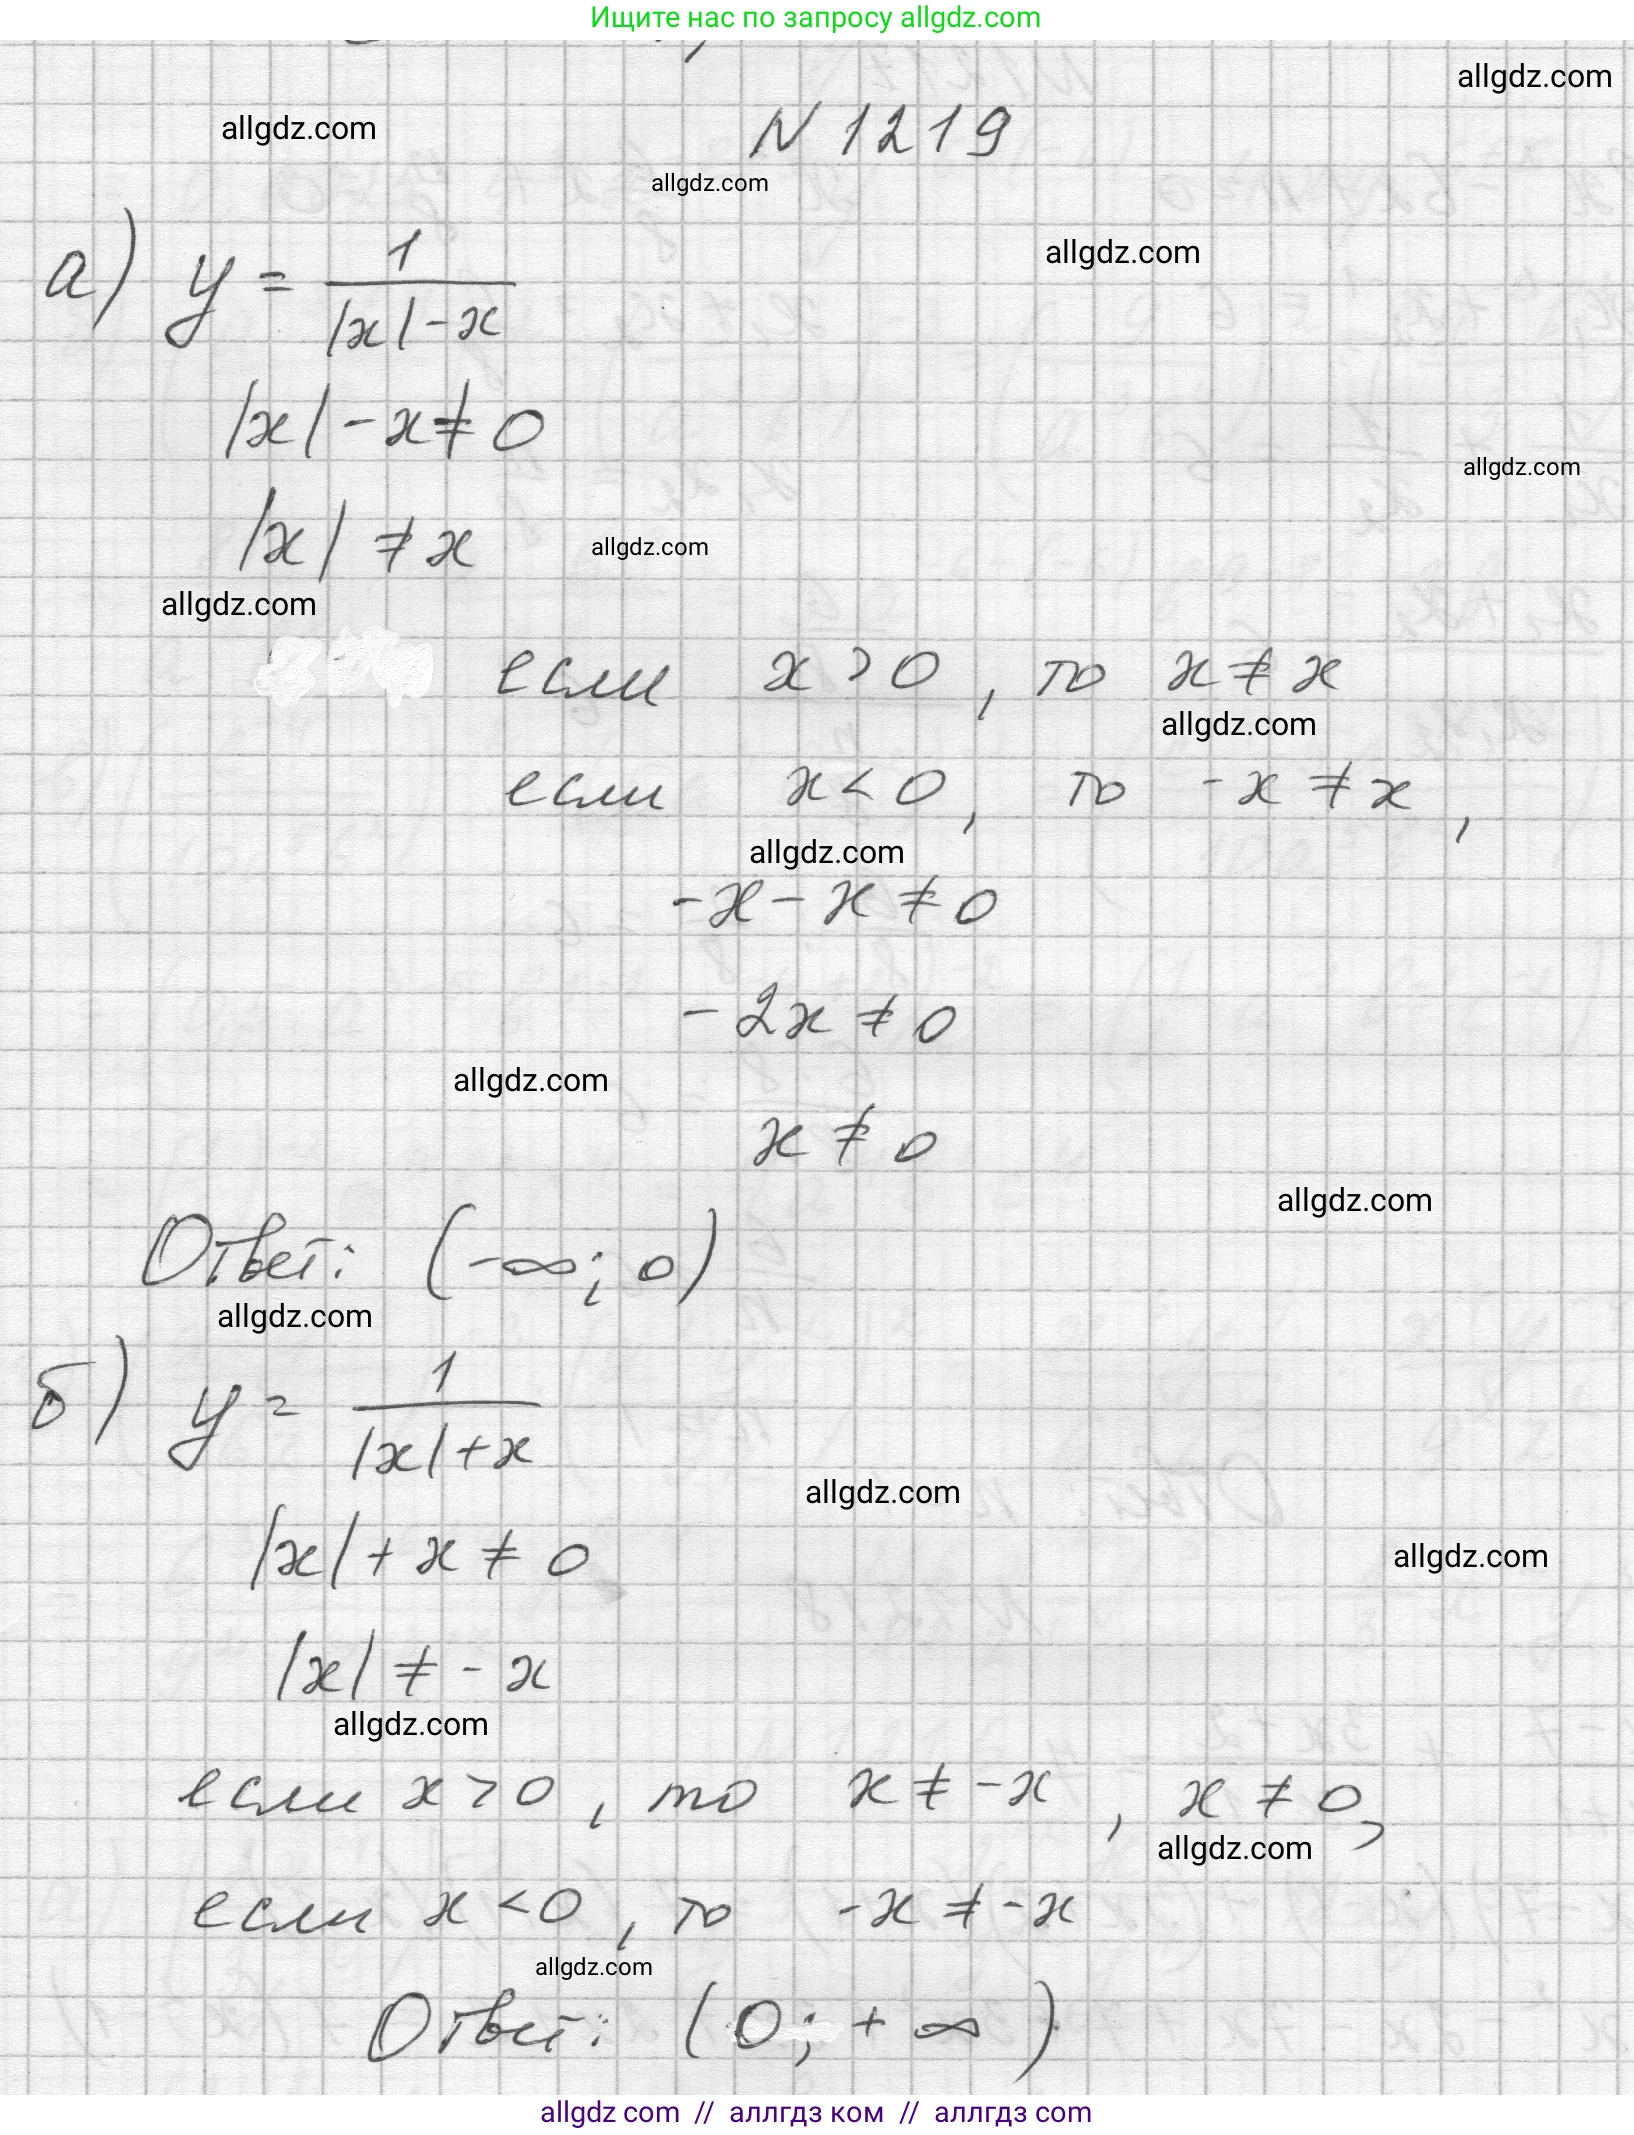 Ищите нас по запросу allgdz.com
allgdz.com
allgdz.com
N 1219
allgdz.com
а) y = 1 / (|x| - x)
allgdz.com
|x| - x ≠ 0
allgdz.com
|x| ≠ x
allgdz.com
allgdz.com
если x > 0, то x ≠ x
allgdz.com
если x < 0, то -x ≠ x,
allgdz.com
-x - x ≠ 0
-2x ≠ 0
allgdz.com
x ≠ 0
allgdz.com
Ответ: (-∞; 0)
allgdz.com
б) y = 1 / (|x| + x)
allgdz.com
|x| + x ≠ 0
allgdz.com
|x| ≠ - x
allgdz.com
если x > 0, то x ≠ -x, x ≠ 0,
allgdz.com
если x < 0, то -x ≠ -x
allgdz.com
Ответ: (0; + ∞)
allgdz com // аллгдз ком // аллгдз com